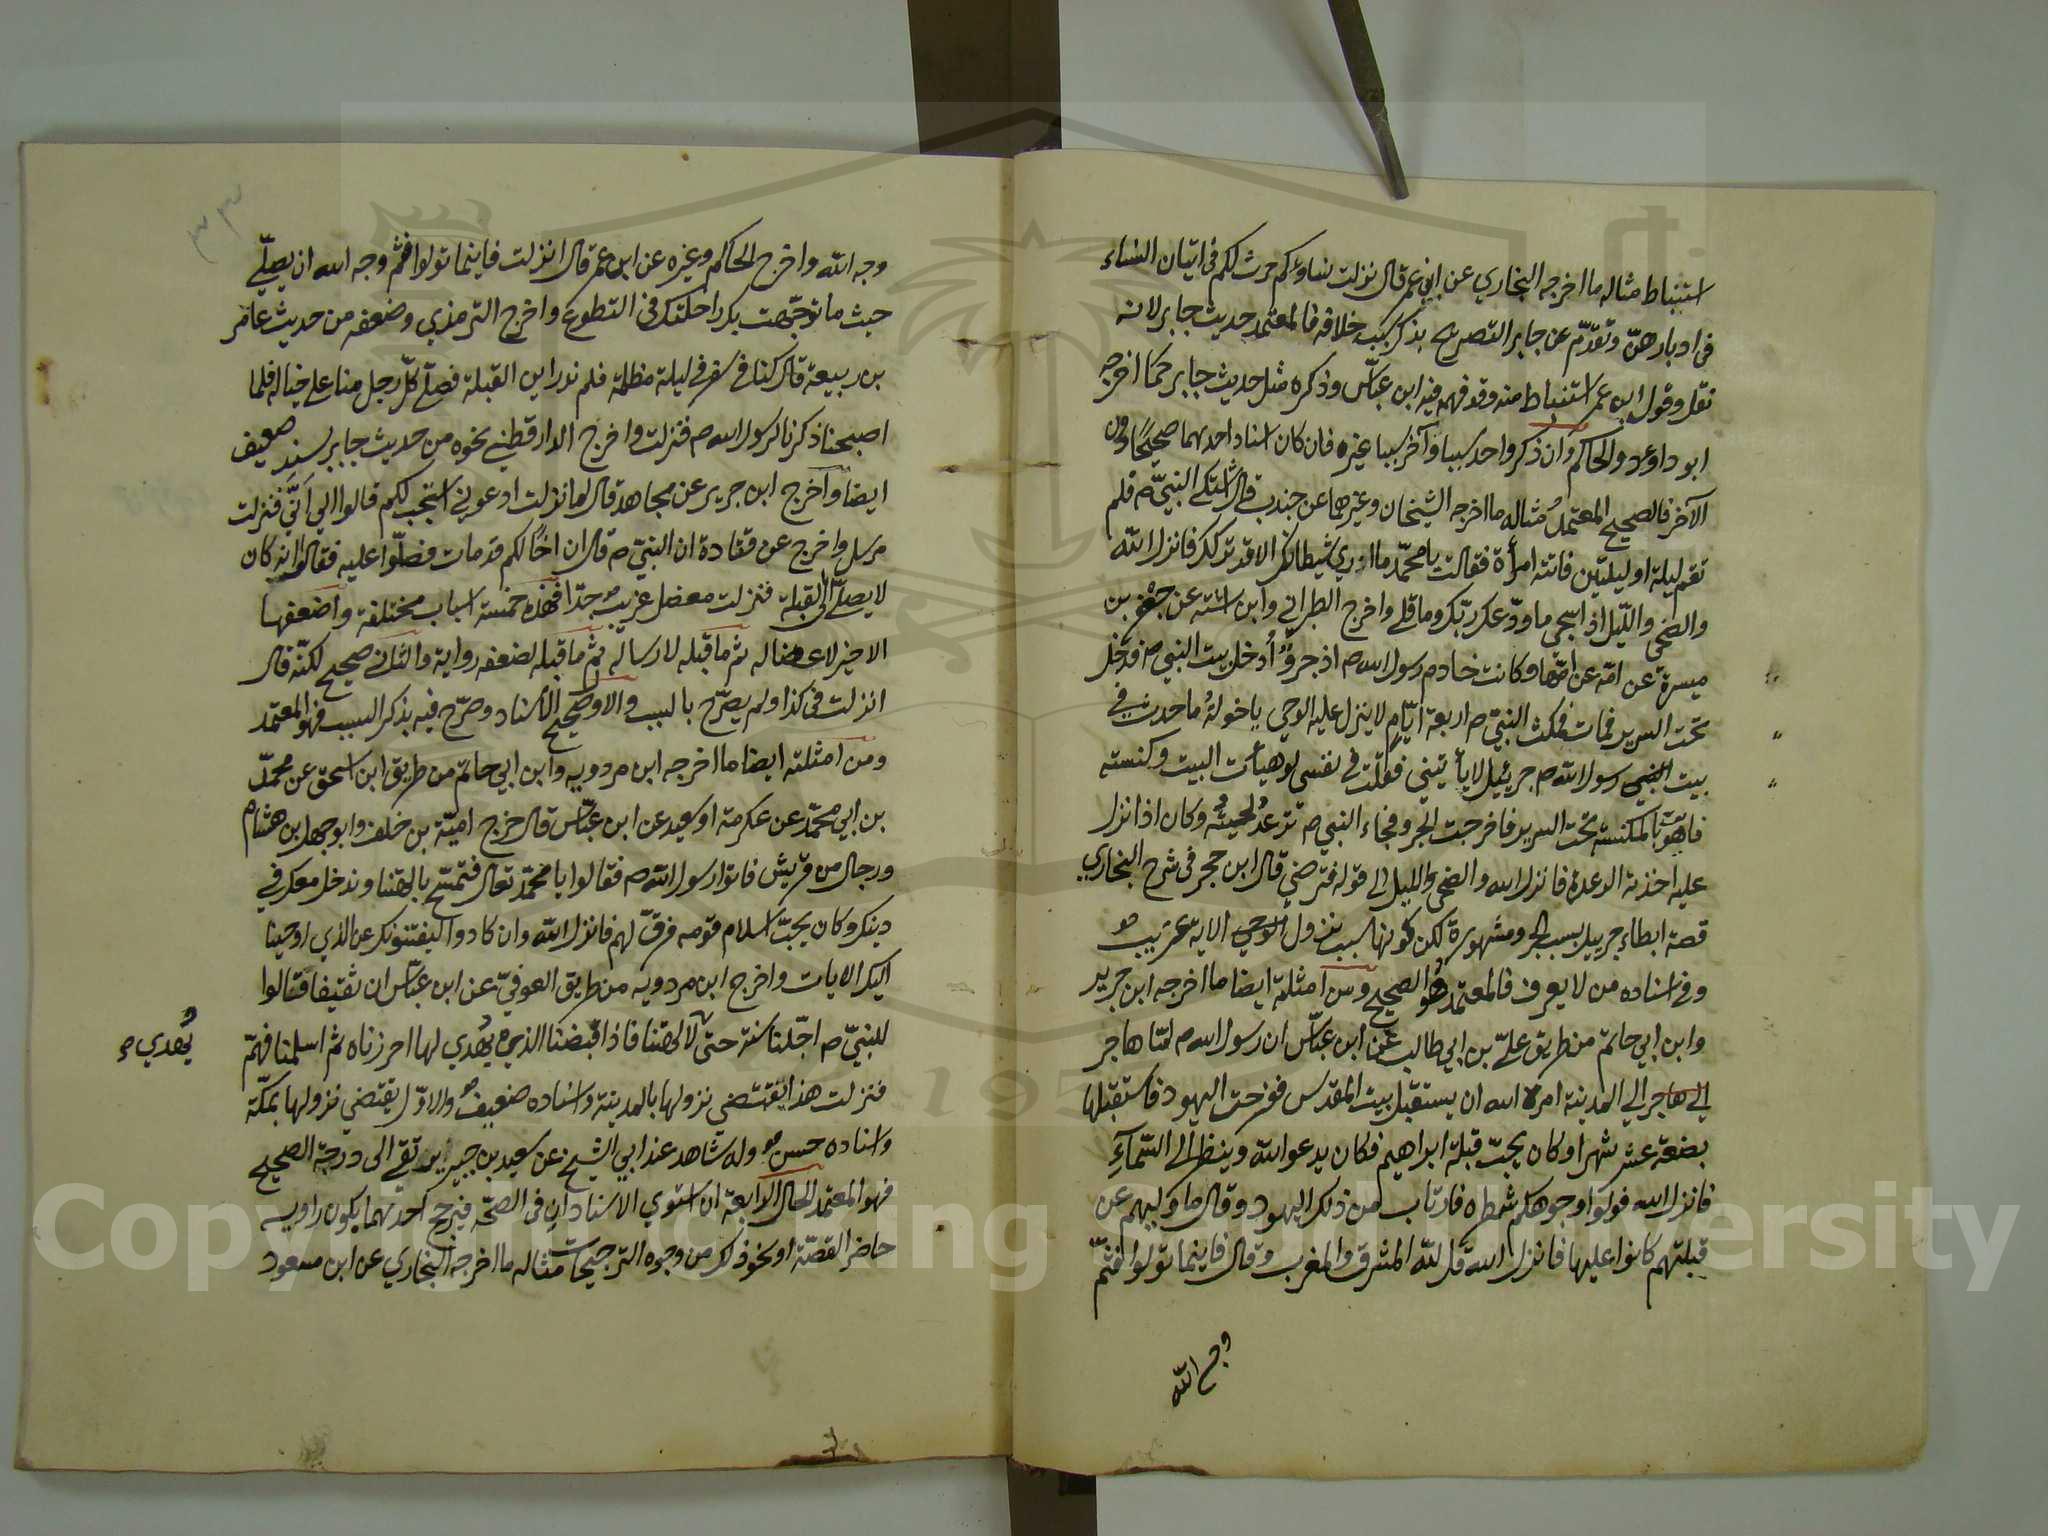 استنباط مثاله ما اخرجه البخاري عن ابن عمر قال نزلت نساؤكم حرث لكم في اتيان النساء
في ادبارهن وتقدم عن جابر التصريح بذكر سبب خلافه فالمعتمد حديث جابر لانه
نقل وقول ابن عمر استنباط منه وقد وهمه فيه ابن عباس وذكره مثل حديث جابر كما اخرجه
ابو داود والحاكم وان ذكر واحد سببا وآخر سببا غيره فان كان اسناد احدهما صحيحًا دون
الآخر فالصحيح المعتمد مثاله ما اخرجه الشيخان وغيرهما عن جندب قال اشتكي النبيّ ص فلم
تقم ليلة او ليلتين فاتته امرأة فقالت يا محمّد ما اري شيطانك الا قد تركك فانزل الله
والضحي والليل اذا سجي ما ودّعك ربّك وما قلي واخرج الطبراني وابن ابي شيبة عن حفص بن
ميسرة عن امّه عن امّها وكانت خادم رسول الله ص ان جروًا دخل بيت النبي ص فدخل
تحت السرير فمات فمكث النبيّ ص اربعة ايّام لا ينزل عليه الوحي يا خولة ما حدث في
بيت رسول الله ص جبرئيل لا يأتيني فقلت في نفسي لو هيأت البيت وكنسته
فاهوت بالمكنسة تحت السرير فاخرجت الجرو فجاء النبي ص ترعد لحيته وكان اذا نزل
عليه اخذته الرعدة فانزل الله والضحي والليل الي قوله فترضي قال ابن حجر في شرح البخاري
قصة ابطاء جبريل بسبب الجرو مشهورة لكن كونها سبب نزول الاية غريب
وفي اسناده من لا يعرف فالمعتمد هو الصحيح ومن امثلته ايضا ما اخرجه ابن جرير
وابن ابي حاتم من طريق عليّ بن ابي طالب عن ابن عبّاس ان رسول الله ص لمّا هاجر
الي هاجر الي المدينة امره الله ان يستقبل بيت المقدس ففرحت اليهود فاستقبلها
بضعة عشر شهرا وكان يحبّ قبلة ابراهيم فكان يدعو الله وينظر الي السّمآء
فانزل الله فولوا وجوهكم شطره فارتاب من ذلك اليهود وقال ما وليهم عن
قبلتهم كانوا عليها فانزل الله قل لله المشرق والمغرب وقال فاينما تولوا فثمّ
وجه الله
٣٣
وجه الله واخرج الحاكم وغيره عن ابن عمر قال انزلت فاينما تولوا فثمّ وجه الله ان يصلّي
حيث ما توجّهت بك راحلتك في التطوع واخرج الترمذي وضعفه من حديث عامر
بن ربيعة قال كنا في سفر في ليلة مظلمة فلم ندر اين القبلة فصلّي كلّ رجل منا علي حياله فلما
اصبحنا ذكرنا لرسول الله ص فنزلت واخرج الدارقطني نحوه من حديث جابر بسند ضعيف
ايضا واخرج ابن جرير عن مجاهد قال لما نزلت ادعوني استجب لكم قالوا الي اين فنزلت
مرسل واخرج عن قتادة ان النبيّ ص قال ان اخًا لكم قد مات فصلّوا عليه فقالوا انه كان
لا يصلّي الي القبلة فنزلت معضل غريب جدّا فهذه خمسة اسباب مختلفة واضعفها
الاخير لاعضاله ثم ما قبله لارساله ثم ما قبله لضعف رواية والثاني صحيح لكنّه قال
انزلت في كذا ولم يصرّح بالسبب والاول صحيح الاسناد وصرّح فيه بذكر السبب فهو المعتمد
ومن امثلته ايضا ما اخرجه ابن مردويه وابن ابي حاتم من طريق ابن اسحق عن محمّد
بن ابي محمّد عن عكرمة او سعيد عن ابن عبّاس قال خرج اميّة بن خلف وابو جهل بن هشام
ورجال من قريش فاتوا رسول الله ص فقالوا يا محمّد تعال فتمسّح بالهتنا وندخل معك في
دينك وكان يحبّ اسلام قومه فرقّ لهم فانزل الله وان كادوا ليفتنونك عن الذي اوحينا
اليك الايات واخرج ابن مردويه من طريق العوفيّ عن ابن عبّاس ان ثقيفا قالوا
للنبيّ ص اجّلنا سنة حتّى لآلهتنا فاذا قبضنا الذي يهدي لها احرزناه ثم اسلمنا فهمّ
يُهدي ص
فنزلت هذا يقتضي نزولها بالمدينة واسناده ضعيف والاوّل يقتضي نزولها بمكّة
واسناده حسن وله شاهد عند ابي الشيخ عن سعيد بن جبير يرتقي الى درجة الصحيح
فهو المعتمد الحال الرابعة ان استوي الاسنادان في الصحّه فيرجح احدهما بكون راويه
حاضر القصّة او نحو ذلك من وجوه الترجيحات مثاله ما اخرجه البخاري عن ابن مسعود
Copyright © King Saud University
195